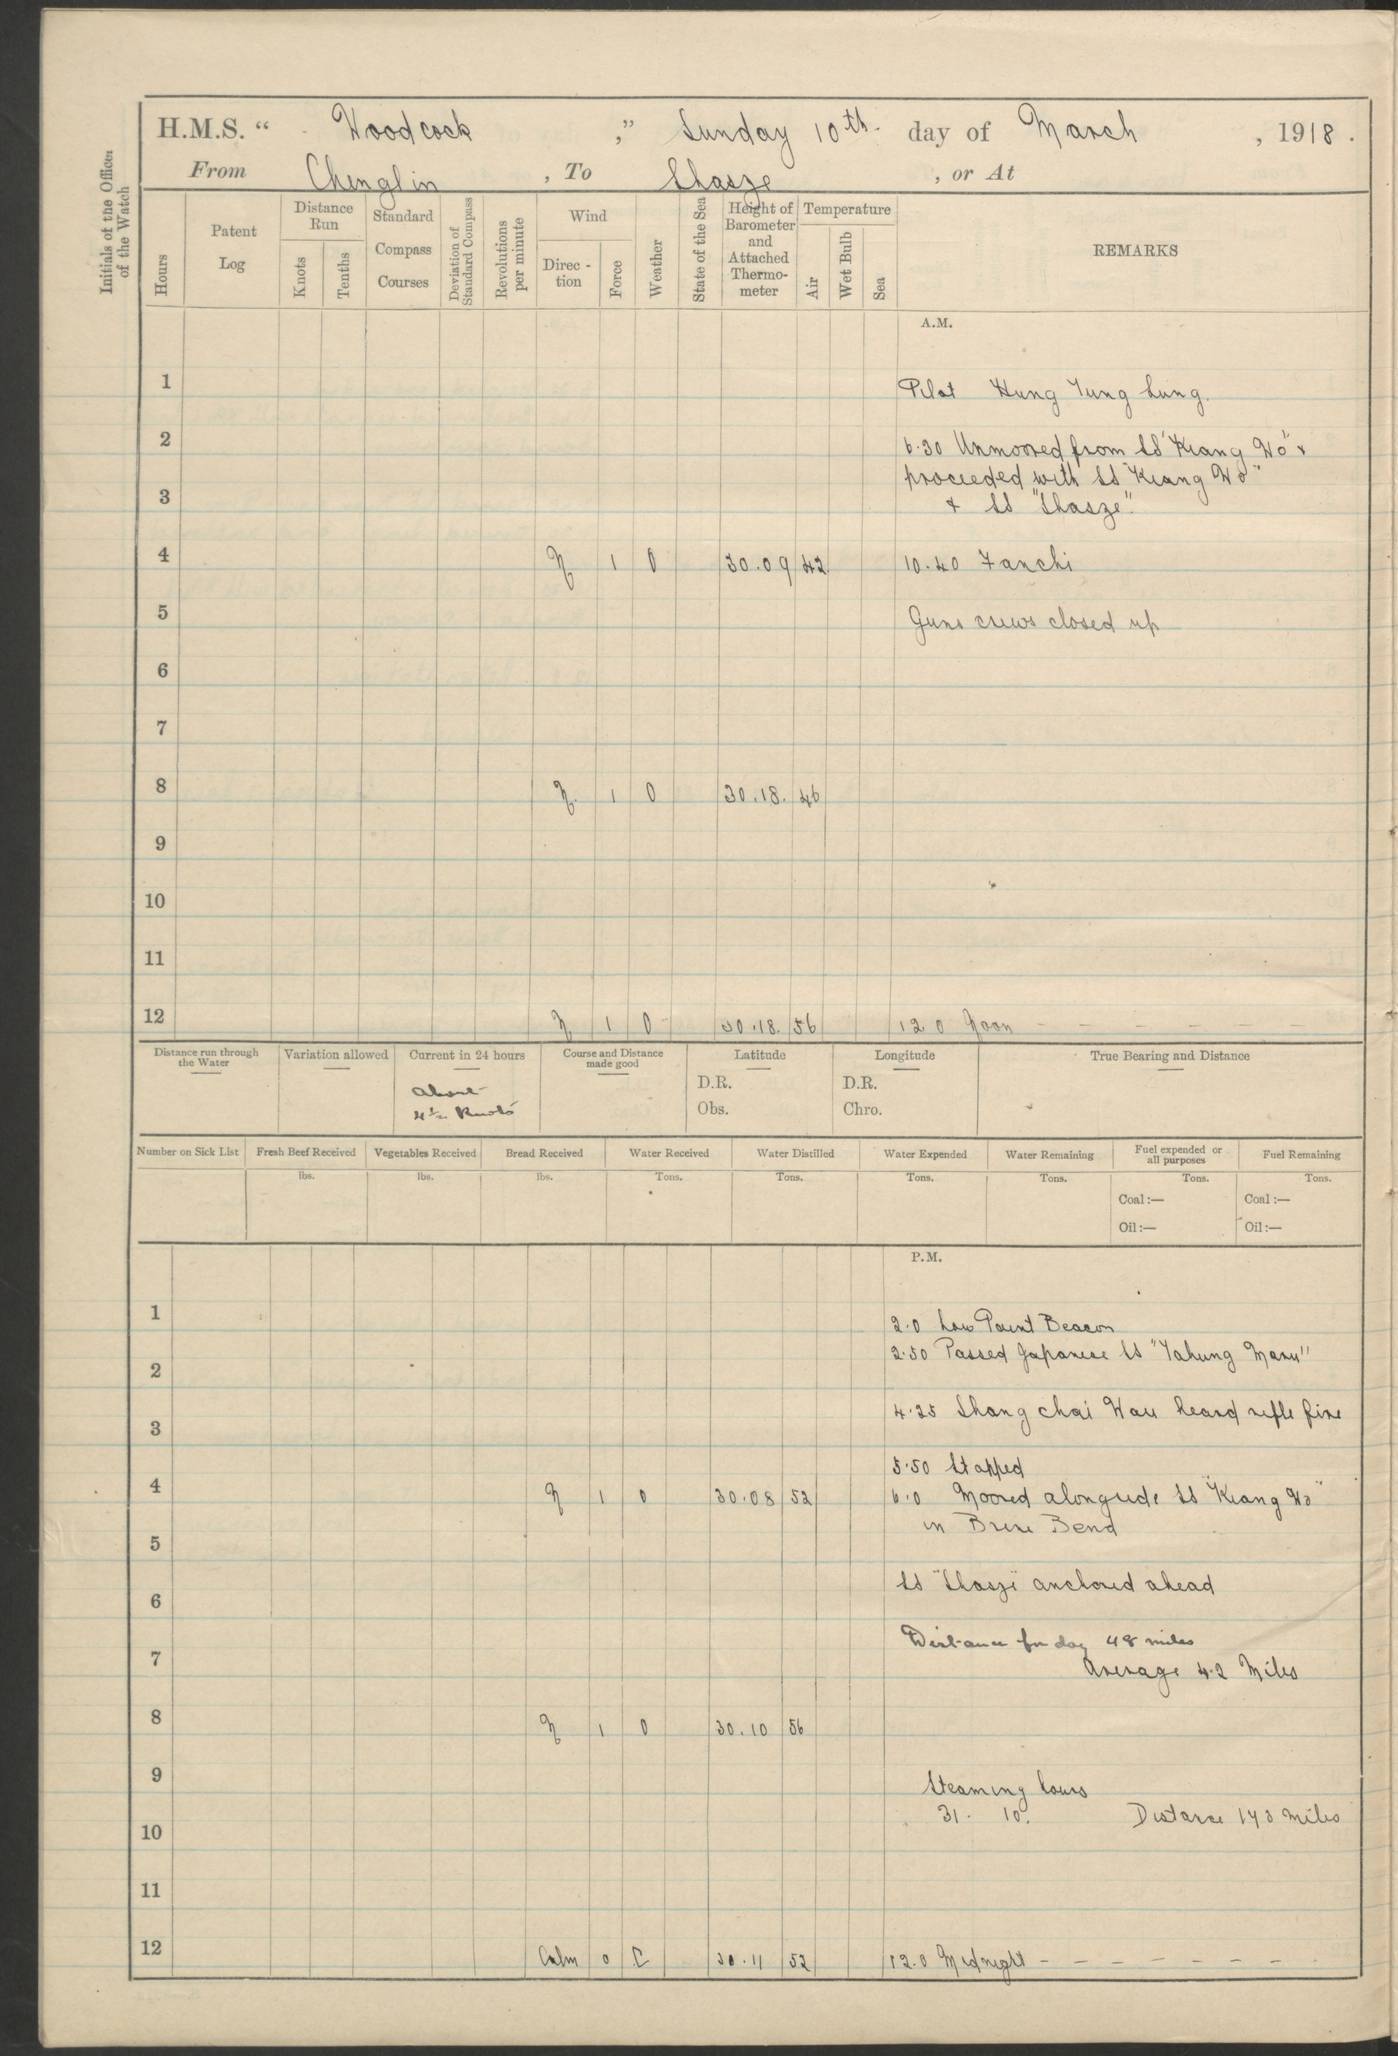 H.M.S. " Woodcock ," Sunday 10th. day of March , 1918.
From Chenglin , To Shasze , or At
Initials of the Officer of the Watch
Hours
Patent Log
Distance Run
Knots
Tenths
Standard Compass Courses
Deviation of Standard Compass
Revolutions per minute
Wind
Direc-tion
Force
Weather
State of the Sea
Height of Barometer and Attached Thermo-meter
Temperature
Air
Wet Bulb
Sea
REMARKS
A.M.
1 Pilot Hung Yung Lung.
2 6.30 Unmoored from SS "Kiang Wo" &
proceeded with SS "Kiang Wo"
3 & SS "Shasze".
4 N 1 0 30.09 42 10.40 Fanchi
5 Guns crews closed up
6
7
8 N. 1 0 30.18. 46
9
10
11
12 N 1 0 30.18. 56 12 0 Noon - - - - - -
Distance run through the Water
Variation allowed
Current in 24 hours
About
4½ Knots
Course and Distance made good
Latitude
D.R.
Obs.
Longitude
D.R.
Chro.
True Bearing and Distance
Number on Sick List
Fresh Beef Received
lbs.
Vegetables Received
lbs.
Bread Received
lbs.
Water Received
Tons.
Water Distilled
Tons.
Water Expended
Tons.
Water Remaining
Tons.
Fuel expended or all purposes
Tons.
Coal :—
Oil :—
Fuel Remaining
Tons.
Coal :—
Oil :—
P.M.
1 2.0 Low Point Beacon
2.50 Passed Japanese SS "Tahung Maru"
2
4.25 Shang chai Wan heard rifle fire
3
5.50 Stopped
4 N 1 0 30.08 52 6.0 Moored alongside SS "Kiang Wo"
in Brine Bend
5
SS "Shasze" anchored ahead
6
Distance for day 48 miles
7 Average 4.2 Miles
8 N 1 0 30.10 56
9 Steaming hours
31. 10. Distance 143 miles
10
11
12 Calm 0 C 30.11 52 12.0 Midnight - - - - - -